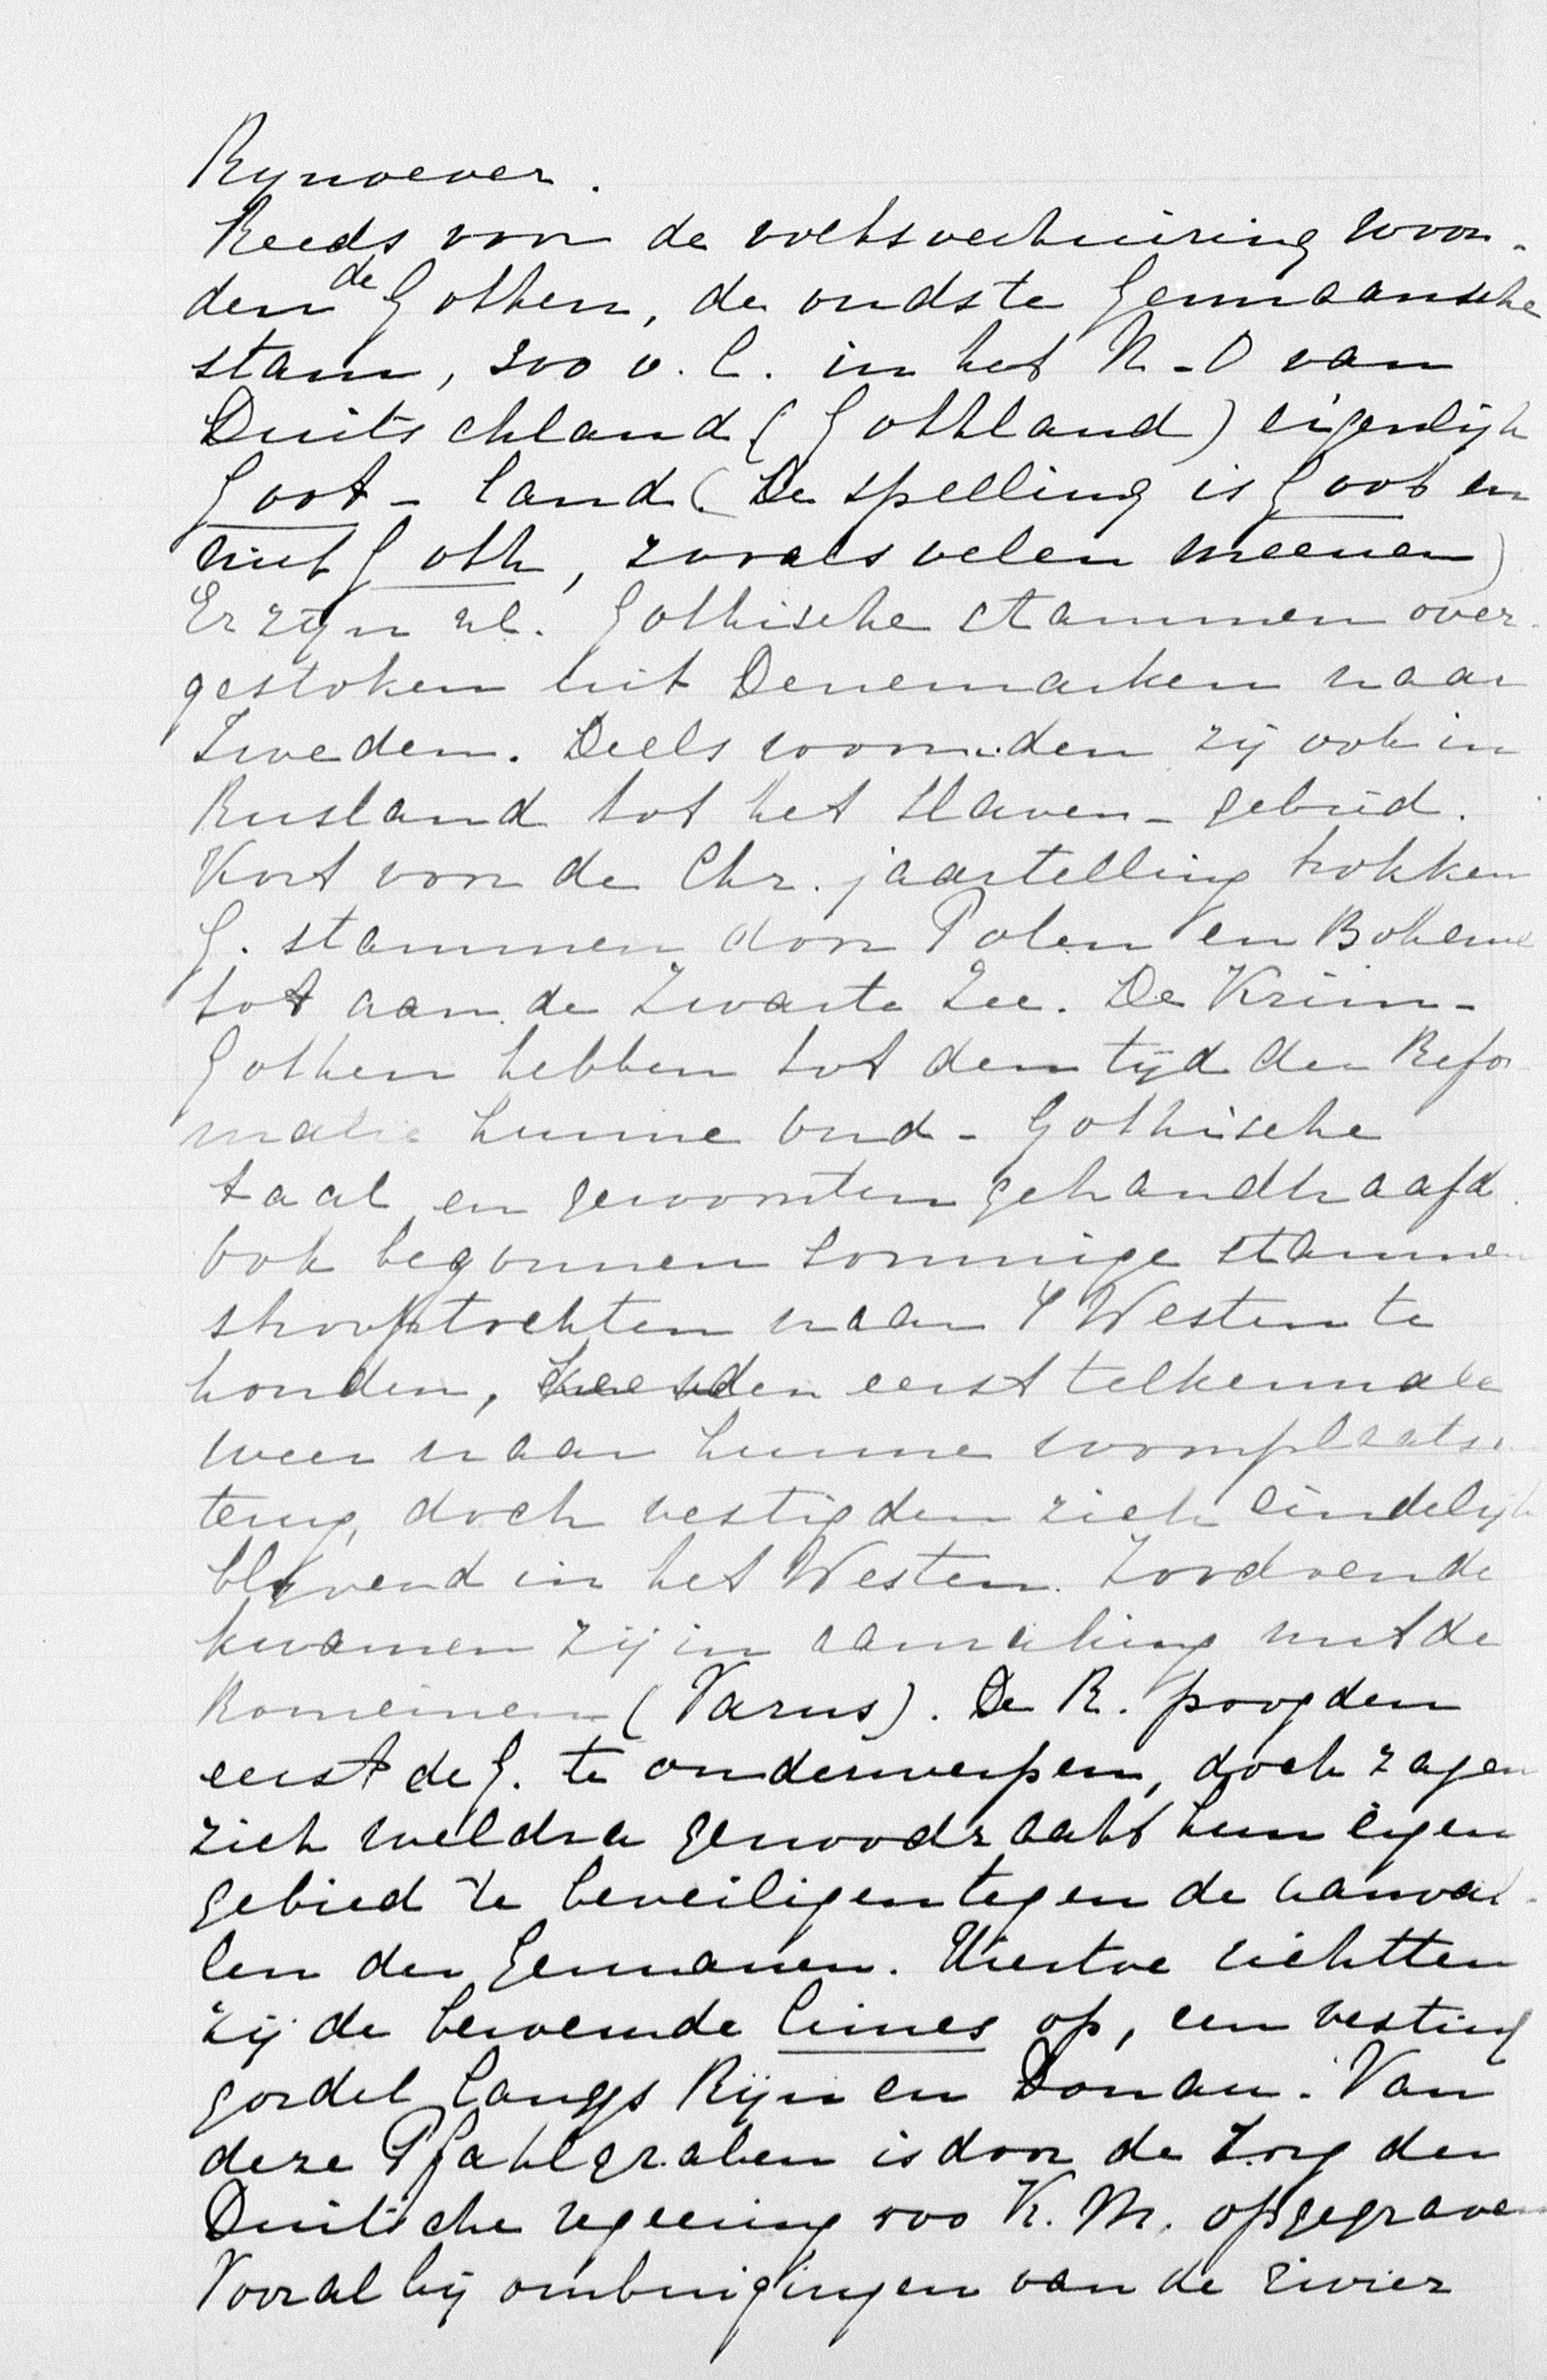 Rynoever.
Reeds voor de volksverhuizing woon-
den de Gothen, de oudste Germaansche
stam, 300 v. C. in het N-O van
Duitschland (Gothland) eigenlijk
Goot-land (De spelling is Goot en
niet Goth, zooals velen meenen)
Er zijn nl. Gothische stammen over-
gestoken uit Denemarken naar
Zweden. Deels woonden zij ook in
Rusland tot het Slaven-gebied.
Kort voor de Chr. jaartelling trokken
G. stammen door Polen en Boheme
tot aan de Zwarte Zee. De Krim-
Gothen hebben tot den tijd der Refor
matie hunne Oud-Gothische
taal en gewoonten gehandhaafd.
Ook begonnen sommige stammen
strooptochten naar 't Westen te
houden, keerden eerst telkenmale
weer naar hunne woonplaatsen
terug, doch vestigden zich eindelijk
blijvend in het Westen. Zoodoende
kwamen zij in aanraking met de
Romeinen (Varus). De R. poogden
eerst de G. te onderwerpen, doch zagen
zich weldra genoodzaakt hun eigen
gebied te beveiligen tegen de aanval-
len der Germanen. Hiertoe richtten
zij de beroemde limes op, een vesting
gordel langs Rijn en Donau. Van
deze Pfahlgraben is door de zorg der
Duitsche regeering 500 K.M. opgegraven
Vooral bij ombuigingen van de rivier